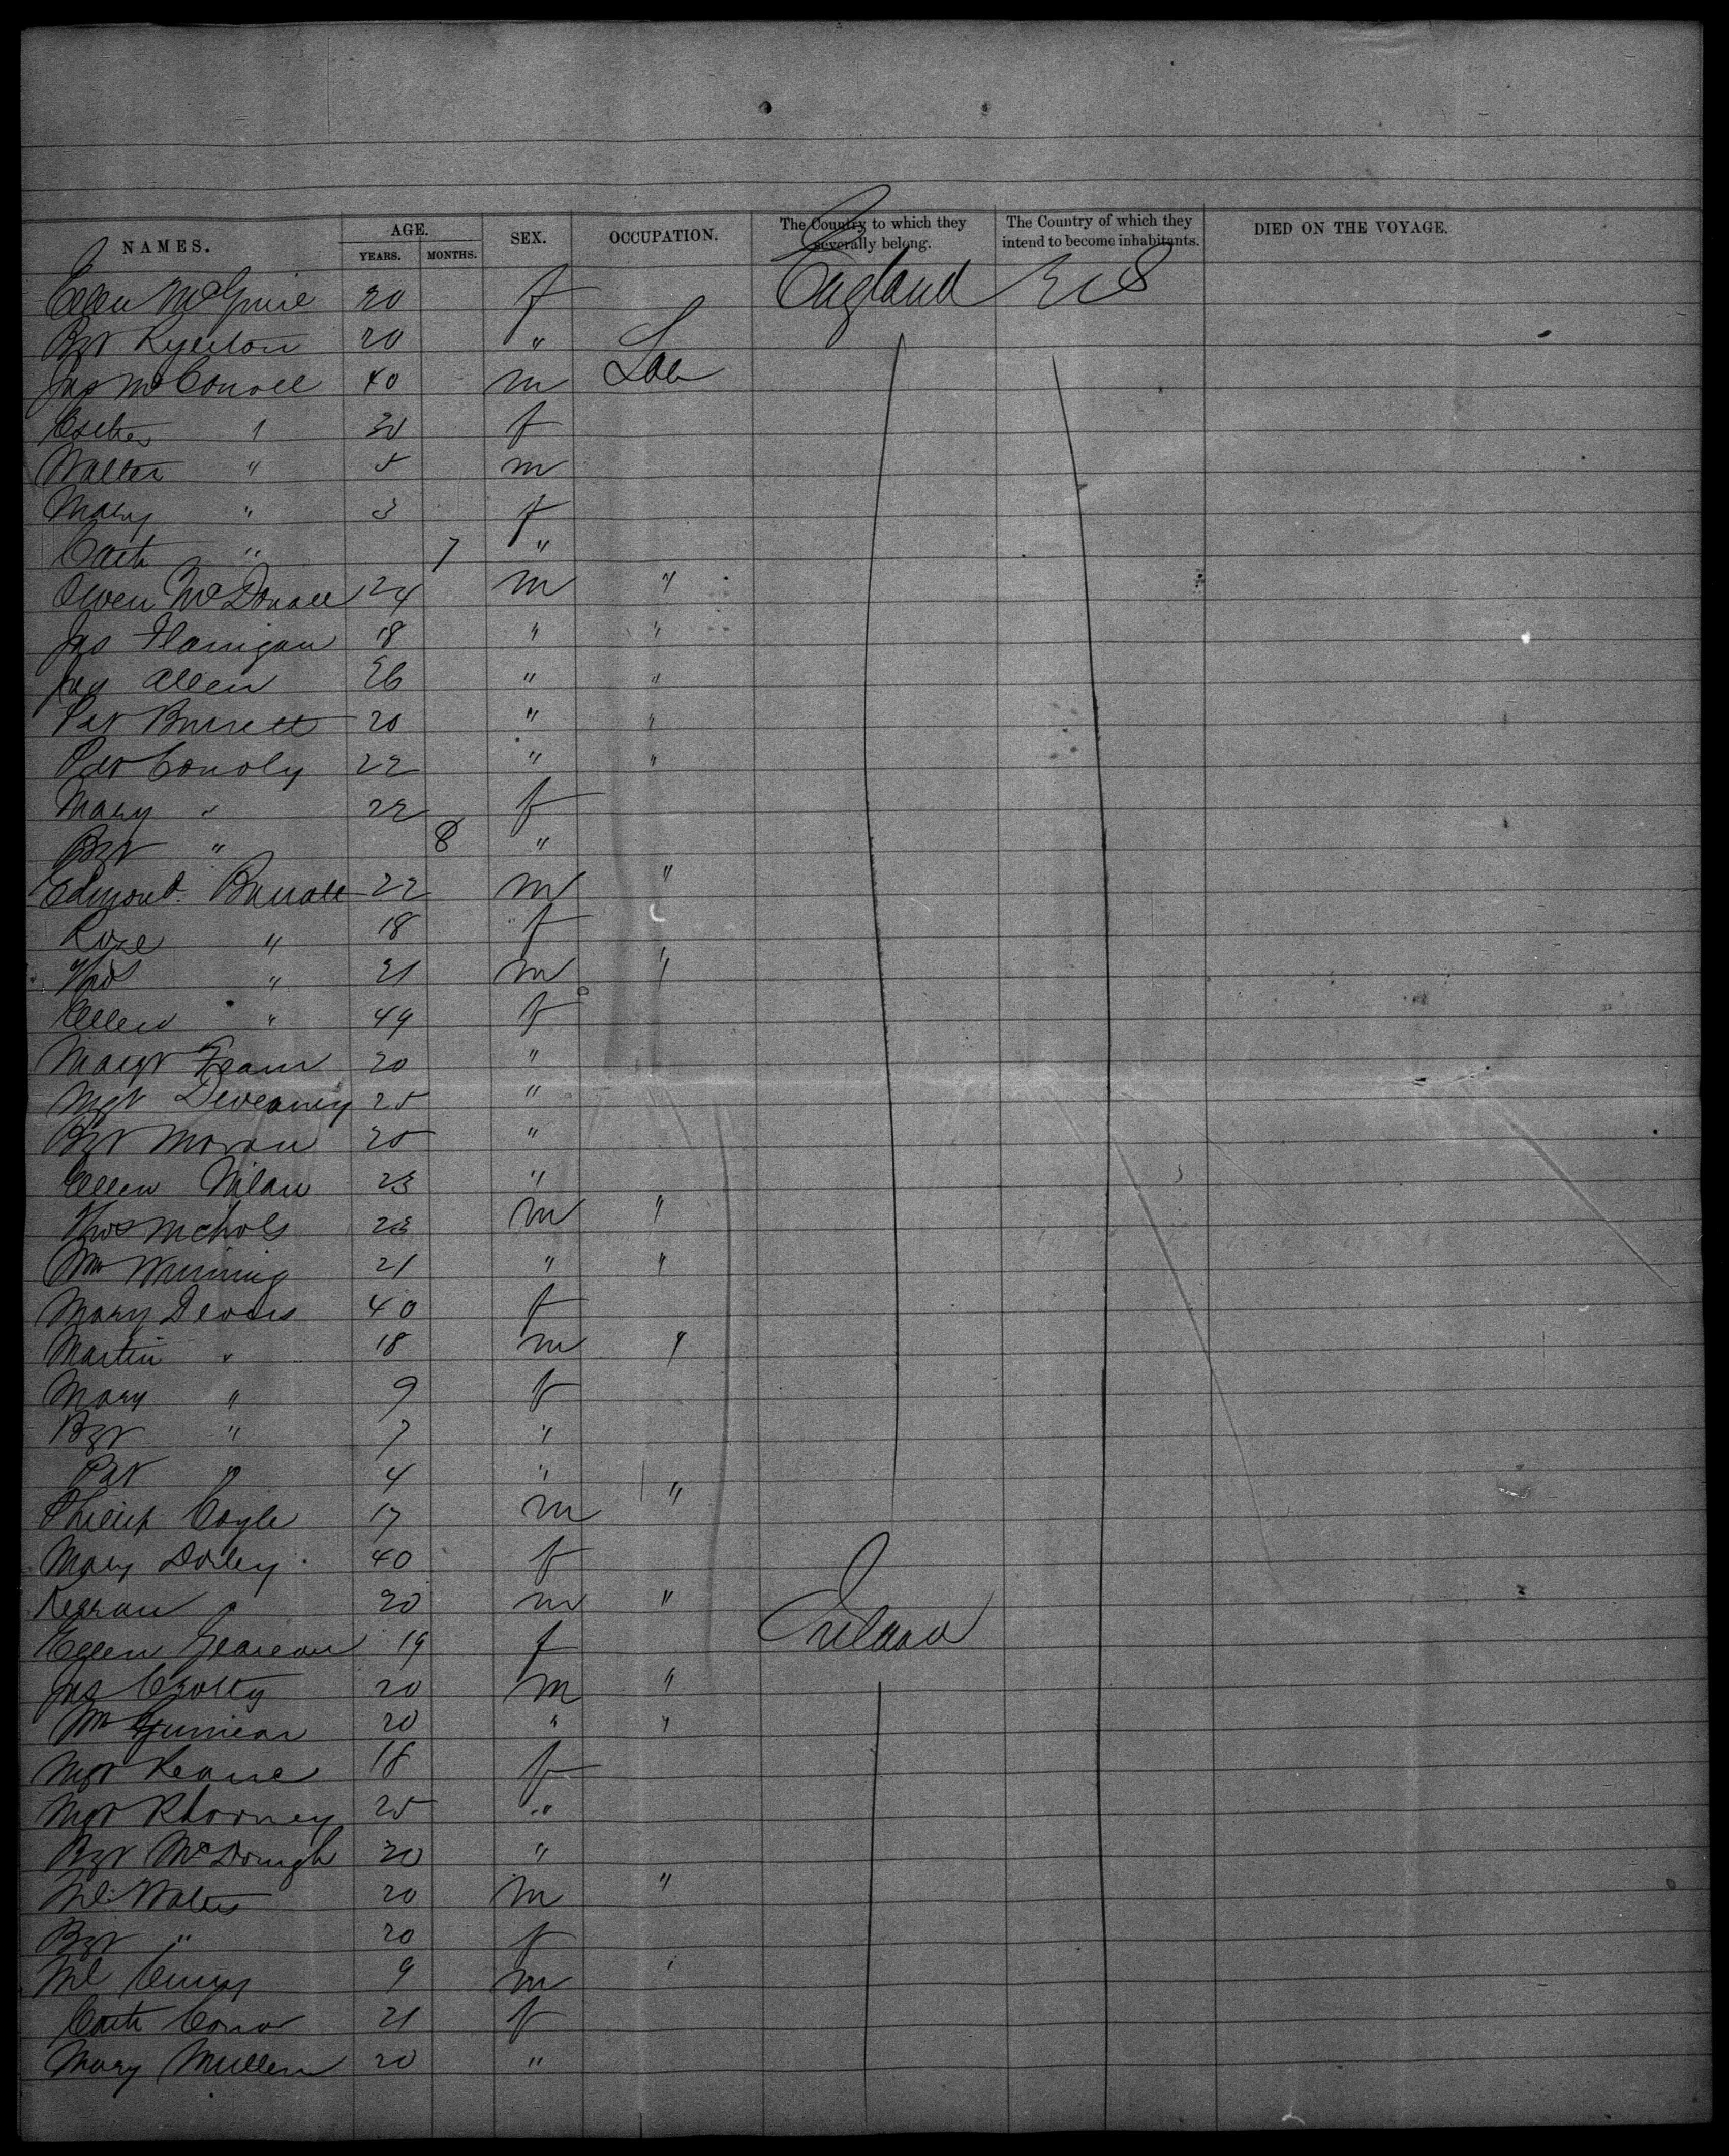 NAMES. AGE. SEX. OCCUPATION. The Country to which they severally belong. The Country of which they intend to become inhabitants. DIED ON THE VOYAGE.
YEARS. MONTHS.
Ellen McGuire 30 f England US
Bgt 20 "
Jas McConoll 40 m Lab
Esther " 30 f
Walter " 5 m
Mary " 3 f
Cath " 7 "
Owen McDonall 24 m "
Jas Flanigan 18 " "
Jas Allen 26 " "
Pat Barrett 20 " "
Pat Conoly 22 " "
Mary " 22 f
Bgt " 8 "
Edmond Barrott 22 m "
Rose " 18 f
Thos " 21 m "
Ellen " 49 f
Margt 20 "
Mgt Deveaney 25 "
Bgt Moran 20 "
Ellen Nilan 23 "
Thos Nichols 23 m "
Wm 21 " "
Mary Devans 40 f
Martin " 18 m "
Mary " 9 f
Bgt " 7 "
Pat " 4 "
Phillip Coyle 17 m "
Mary Dorley 40 f
Kearan " 20 m "
Ellen 19 f Ireland
Jas Crotty 20 m "
Wm 20 " "
Mgt Keane 18 f
Mgt 25 "
Bgt McDough 20 "
Ml Waters 20 m "
Bgt " 20 f
Ml 9 m "
Cath Conor 21 f
Mary Mullen 20 "